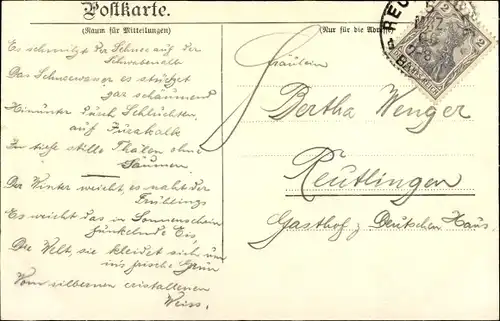 Postkarte.
(Raum für Mitteilungen)
(Nur für die Adresse)
Es schmilzt der Schnee auf der
Schwabenalb
Das Schneewasser es stürzet
gar schäumend
Hinunter durch Schluchten,
auf Jurakalk
In tiefe stille Thäler ohne
Säumen.
Der Winter weicht, es naht der
Frühling
Es weicht das in Sonnenschein
funkelnde Eis,
Die Welt, sie kleidet sich um
ins frische Grün
Vom silbernen cristallenen
Weiss.
Fräulein
Bertha Wenger
Reutlingen
Gasthof z. Deutschen Haus.
2
2